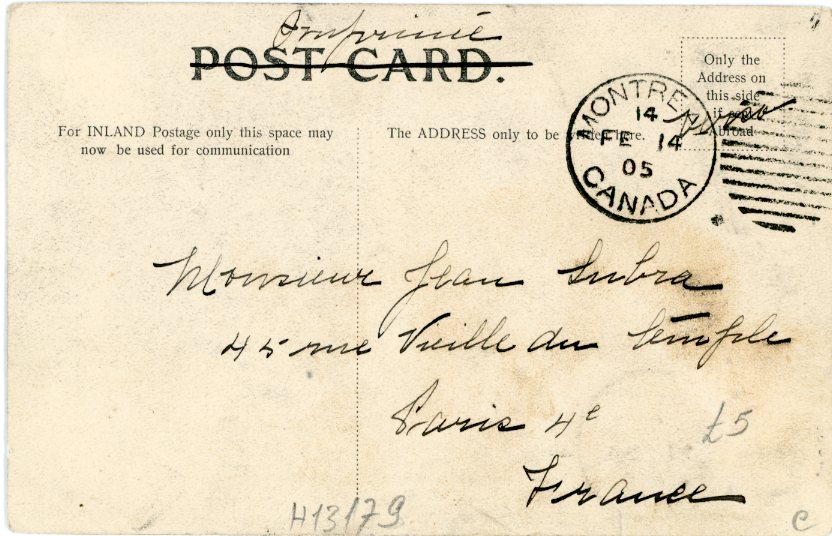 Imprimé
POST CARD.
Only the
Address on
this side
if
Abroad
verso
For INLAND Postage only this space may
now be used for communication
The ADDRESS only to be written here.
MONTREAL
14
FE 14
05
CANADA
Monsieur Jean Subra
45 rue Vieille du Temple
Paris 4e
France
£5
H13/79
C